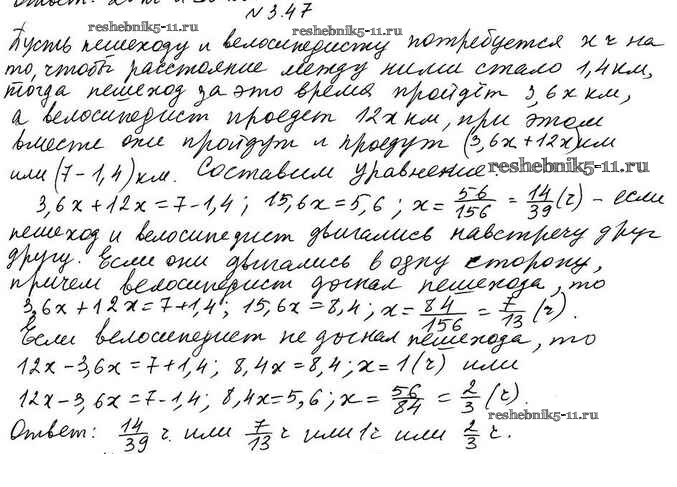 Ответ:
№ 3.47
reshebnik5-11.ru
Пусть пешеходу и велосипедисту потребуется x ч на
то, чтобы расстояние между ними стало 1,4 км,
тогда пешеход за это время пройдёт 3,6x км,
а велосипедист проедет 12x км, при этом
вместе они пройдут и проедут (3,6x+12x) км
или (7-1,4) км. Составим уравнение:
reshebnik5-11.ru
3,6x+12x=7-1,4; 15,6x=5,6; x=56/156=14/39(ч) - если
пешеход и велосипедист двигались навстречу друг
другу. Если они двигались в одну сторону,
причем велосипедист догнал пешехода, то
3,6x+12x=7+1,4; 15,6x=8,4; x=84/156=7/13(ч).
Если велосипедист не догнал пешехода, то
12x-3,6x=7+1,4; 8,4x=8,4; x=1(ч) или
12x-3,6x=7-1,4; 8,4x=5,6; x=56/84=2/3(ч).
reshebnik5-11.ru
Ответ: 14/39 ч. или 7/13 ч или 1ч или 2/3 ч.